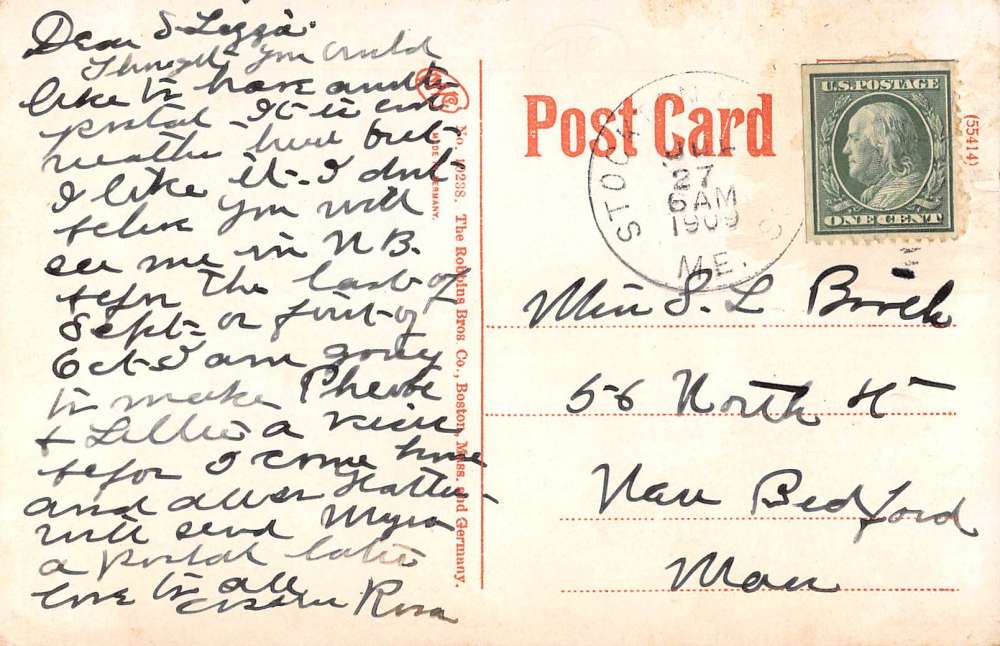 Dear S Lizzie
Thought you would
like to have another
postal. It is cool
weather here but
I like it. I dont
believe you will
see me in N B.
befor the last of
Sept. or first of
Oct I am going
to make Phebe
& Lillie a visit
befor I come home
and Hattie
will send Myra
a postal later
love to all
cousin Rosa
MADE IN GERMANY.
No. 10238. The Robbins Bros. Co., Boston, Mass. and Germany.
Post Card
(55414)
U.S. POSTAGE
ONE CENT
STOCKTON S
27
6 AM
1909
ME.
Miss S. L
56 North St
New Bedford
Mass